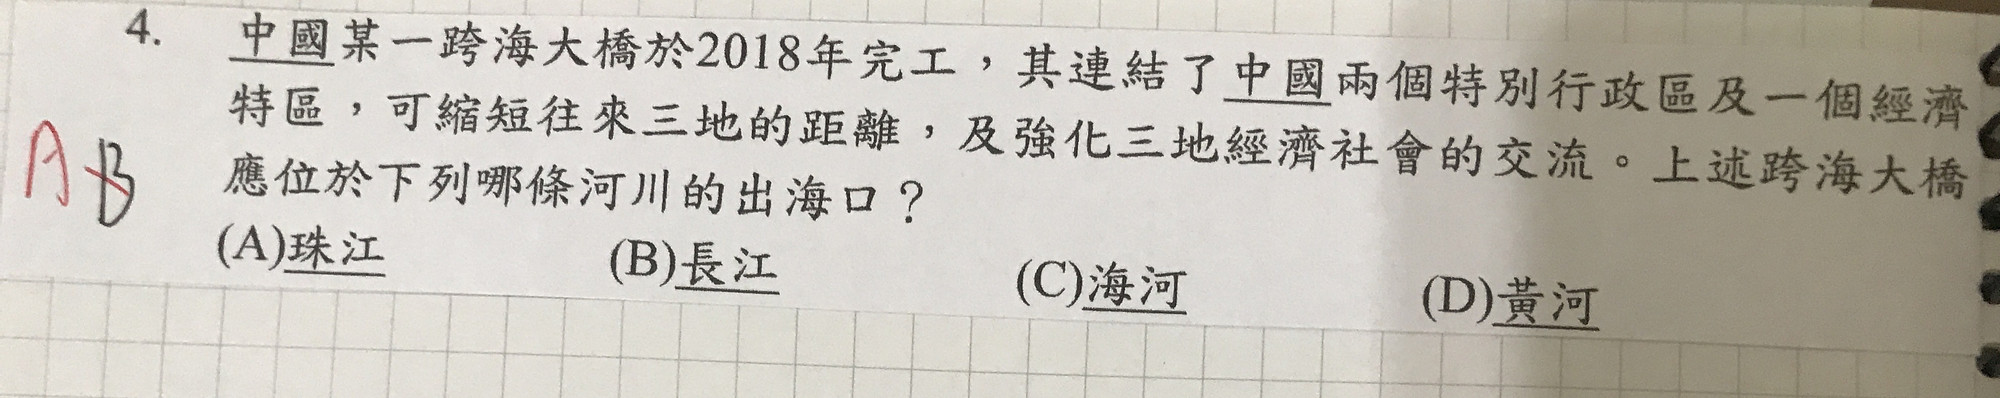 4. 中國某一跨海大橋於2018年完工，其連結了中國兩個特別行政區及一個經濟
特區，可縮短往來三地的距離，及強化三地經濟社會的交流。上述跨海大橋
應位於下列哪條河川的出海口？
(A)珠江 (B)長江 (C)海河 (D)黃河
A B